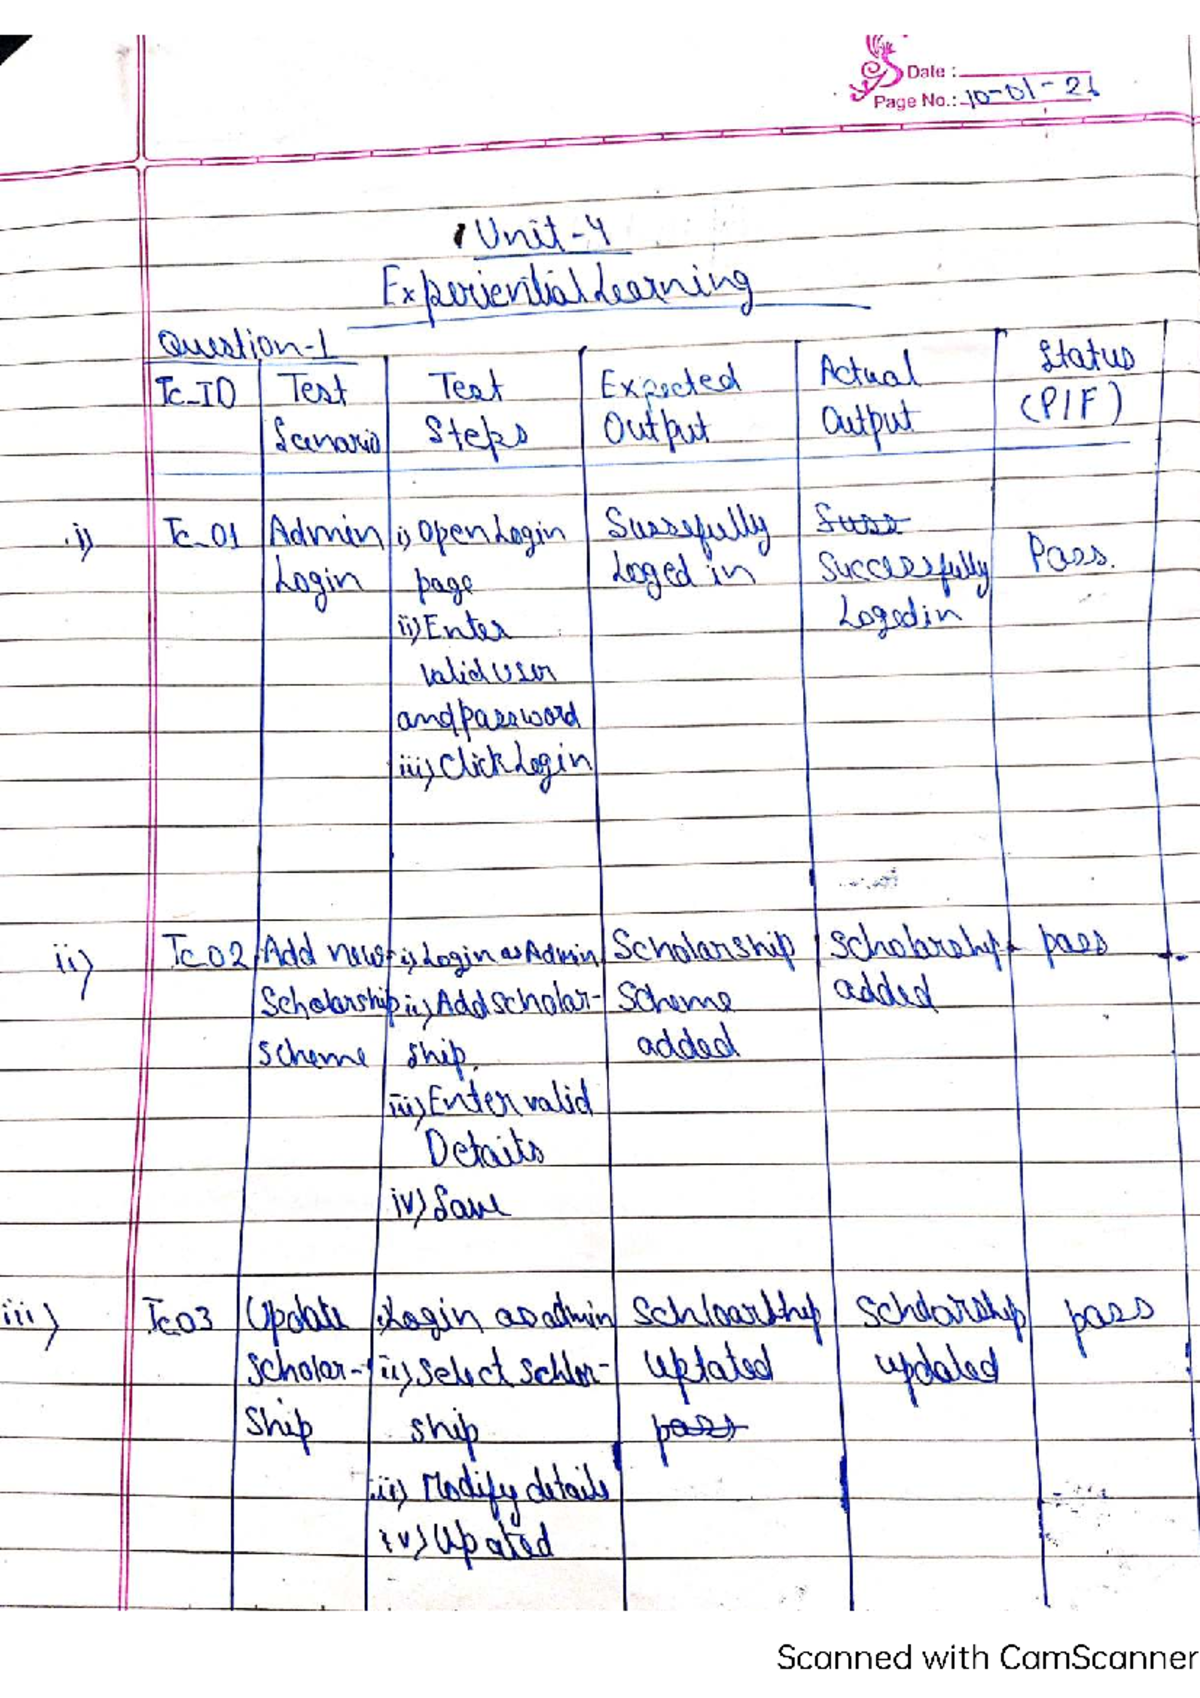 Date :
Page No.: 10-01-26
Unit-4
Experiential Learning
Question-1
Tc_ID Test Scenario Test Steps Expected Output Actual Output Status (P/F)
i) Tc_01 Admin i) Open Login Sussefully Suss Pass.
Login page Loged in Successfully
ii) Enter Logedin
valid user
and password
iii) Click Login
ii) Tc02 Add new i) Login as Admin Scholarship Scholarship pass
Scholarship ii) Add scholar- Scheme added
scheme ship. added
iii) Enter valid
Details
iv) Save
iii) Tc03 Update i) Login as admin Schloarthip Scholarship pass
scholar- ii) select schlor- uptated updated
ship ship pass
iii) Modify details
iv) Upated
Scanned with CamScanner